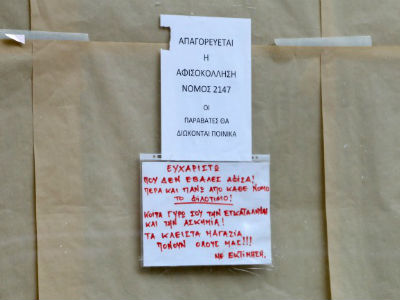 ΑΠΑΓΟΡΕΥΕΤΑΙ
Η
ΑΦΙΣΟΚΟΛΛΗΣΗ
ΝΟΜΟΣ 2147
ΟΙ
ΠΑΡΑΒΑΤΕΣ ΘΑ
ΔΙΩΚΟΝΤΑΙ ΠΟΙΝΙΚΑ
ΕΥΧΑΡΙΣΤΩ
ΠΟΥ ΔΕΝ ΕΒΑΛΕΣ ΑΦΙΣΑ!
ΠΕΡΑ ΚΑΙ ΠΑΝΩ ΑΠΟ ΚΑΘΕ ΝΟΜΟ
ΤΟ ΦΙΛΟΤΙΜΟ!
ΚΟΙΤΑ ΓΥΡΩ ΣΟΥ ΤΗΝ ΕΓΚΑΤΑΛΗΨΗ
ΚΑΙ ΤΗΝ ΑΣΧΗΜΙΑ!
ΤΑ ΚΛΕΙΣΤΑ ΜΑΓΑΖΙΑ
ΠΟΝΟΥΝ ΟΛΟΥΣ ΜΑΣ!!!
ΜΕ ΕΚΤΙΜΗΣΗ.